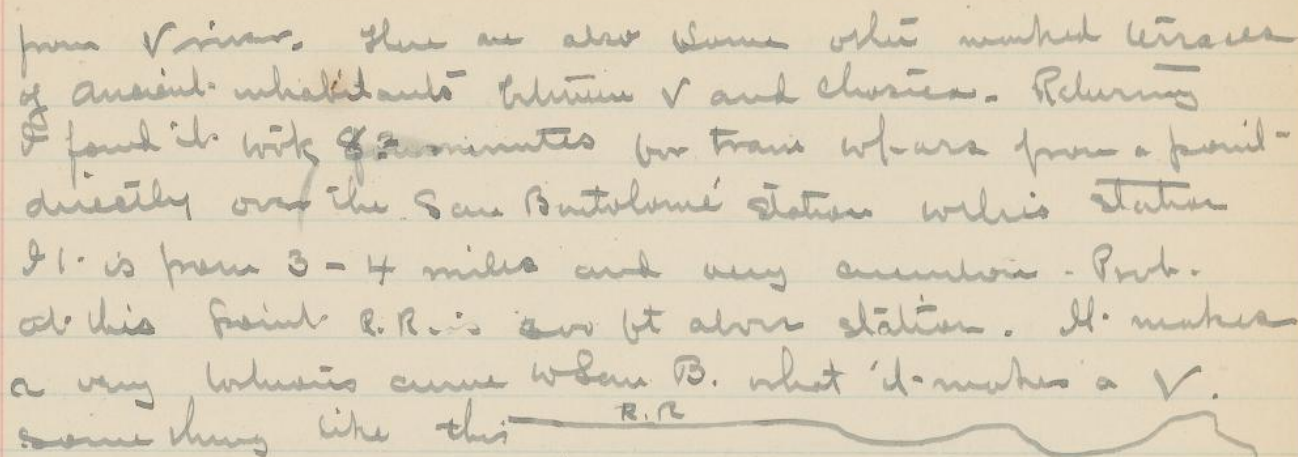 from V river. There are also some other marked terraces
of ancient inhabitants between V and Chosica. Returning
I found it took minutes for train to pass from a point
directly over the San Bartolomé station to this station
It is from 3-4 miles and very - Prob.
at this point R.R. is 200 ft above station. It makes
a very curve to San B. what it makes a V.
something like this R.R